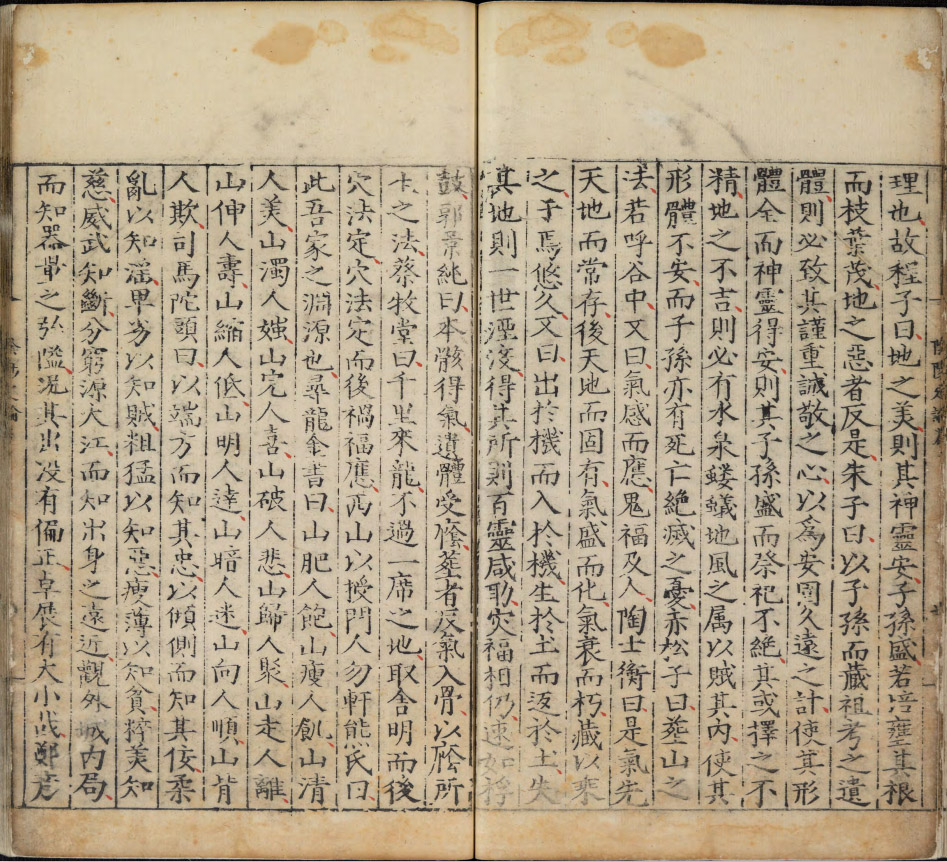 理也故程子曰地之美則其神靈安子孫盛若培壅其根
而枝葉茂地之惡者反是朱子曰以子孫而藏祖考之遺
體則必致其謹重誠敬之心以爲安固久遠之計使其形
體全而神靈得安則其子孫盛而祭祀不絶其或擇之不
精地之不吉則必有水泉螻蟻地風之属以賊其內使其
形體不安而子孫亦有死亡絶滅之憂赤松子曰葬山之
法若呼谷中又曰氣感而應鬼福及人陶士衡曰是氣先
天地而常存後天地而固有氣盛而化氣衰而朽藏以乘
之子焉悠久又曰出於機而入於機生於土而返於土失
其地則一世湮沒得其所則百靈咸助灾福相仍速如桴
鼓郭景純曰本骸得氣遺體受廕葬者反氣入骨以廕所
生之法蔡牧堂曰千里來龍不過一席之地取舍明而後
穴法定穴法定而後禍福應西山以授門人勿軒熊氏曰
此吾家之淵源也尋龍金書曰山肥人飽山瘦人飢山清
人美山濁人媸山完人喜山破人悲山歸人聚山走人離
山伸人壽山縮人低山明人達山暗人迷山向人順山背
人欺司馬陀頭曰以端方而知其忠以傾側而知其佞柔
亂以知滛卑劣以知賊粗猛以知惡瘦薄以知貧粹美知
慈威武知斷分窮源大江而知出身之遠近觀外城內局
而知器量之弘隘况其出没有偏正卓展有大小哉鄭彦